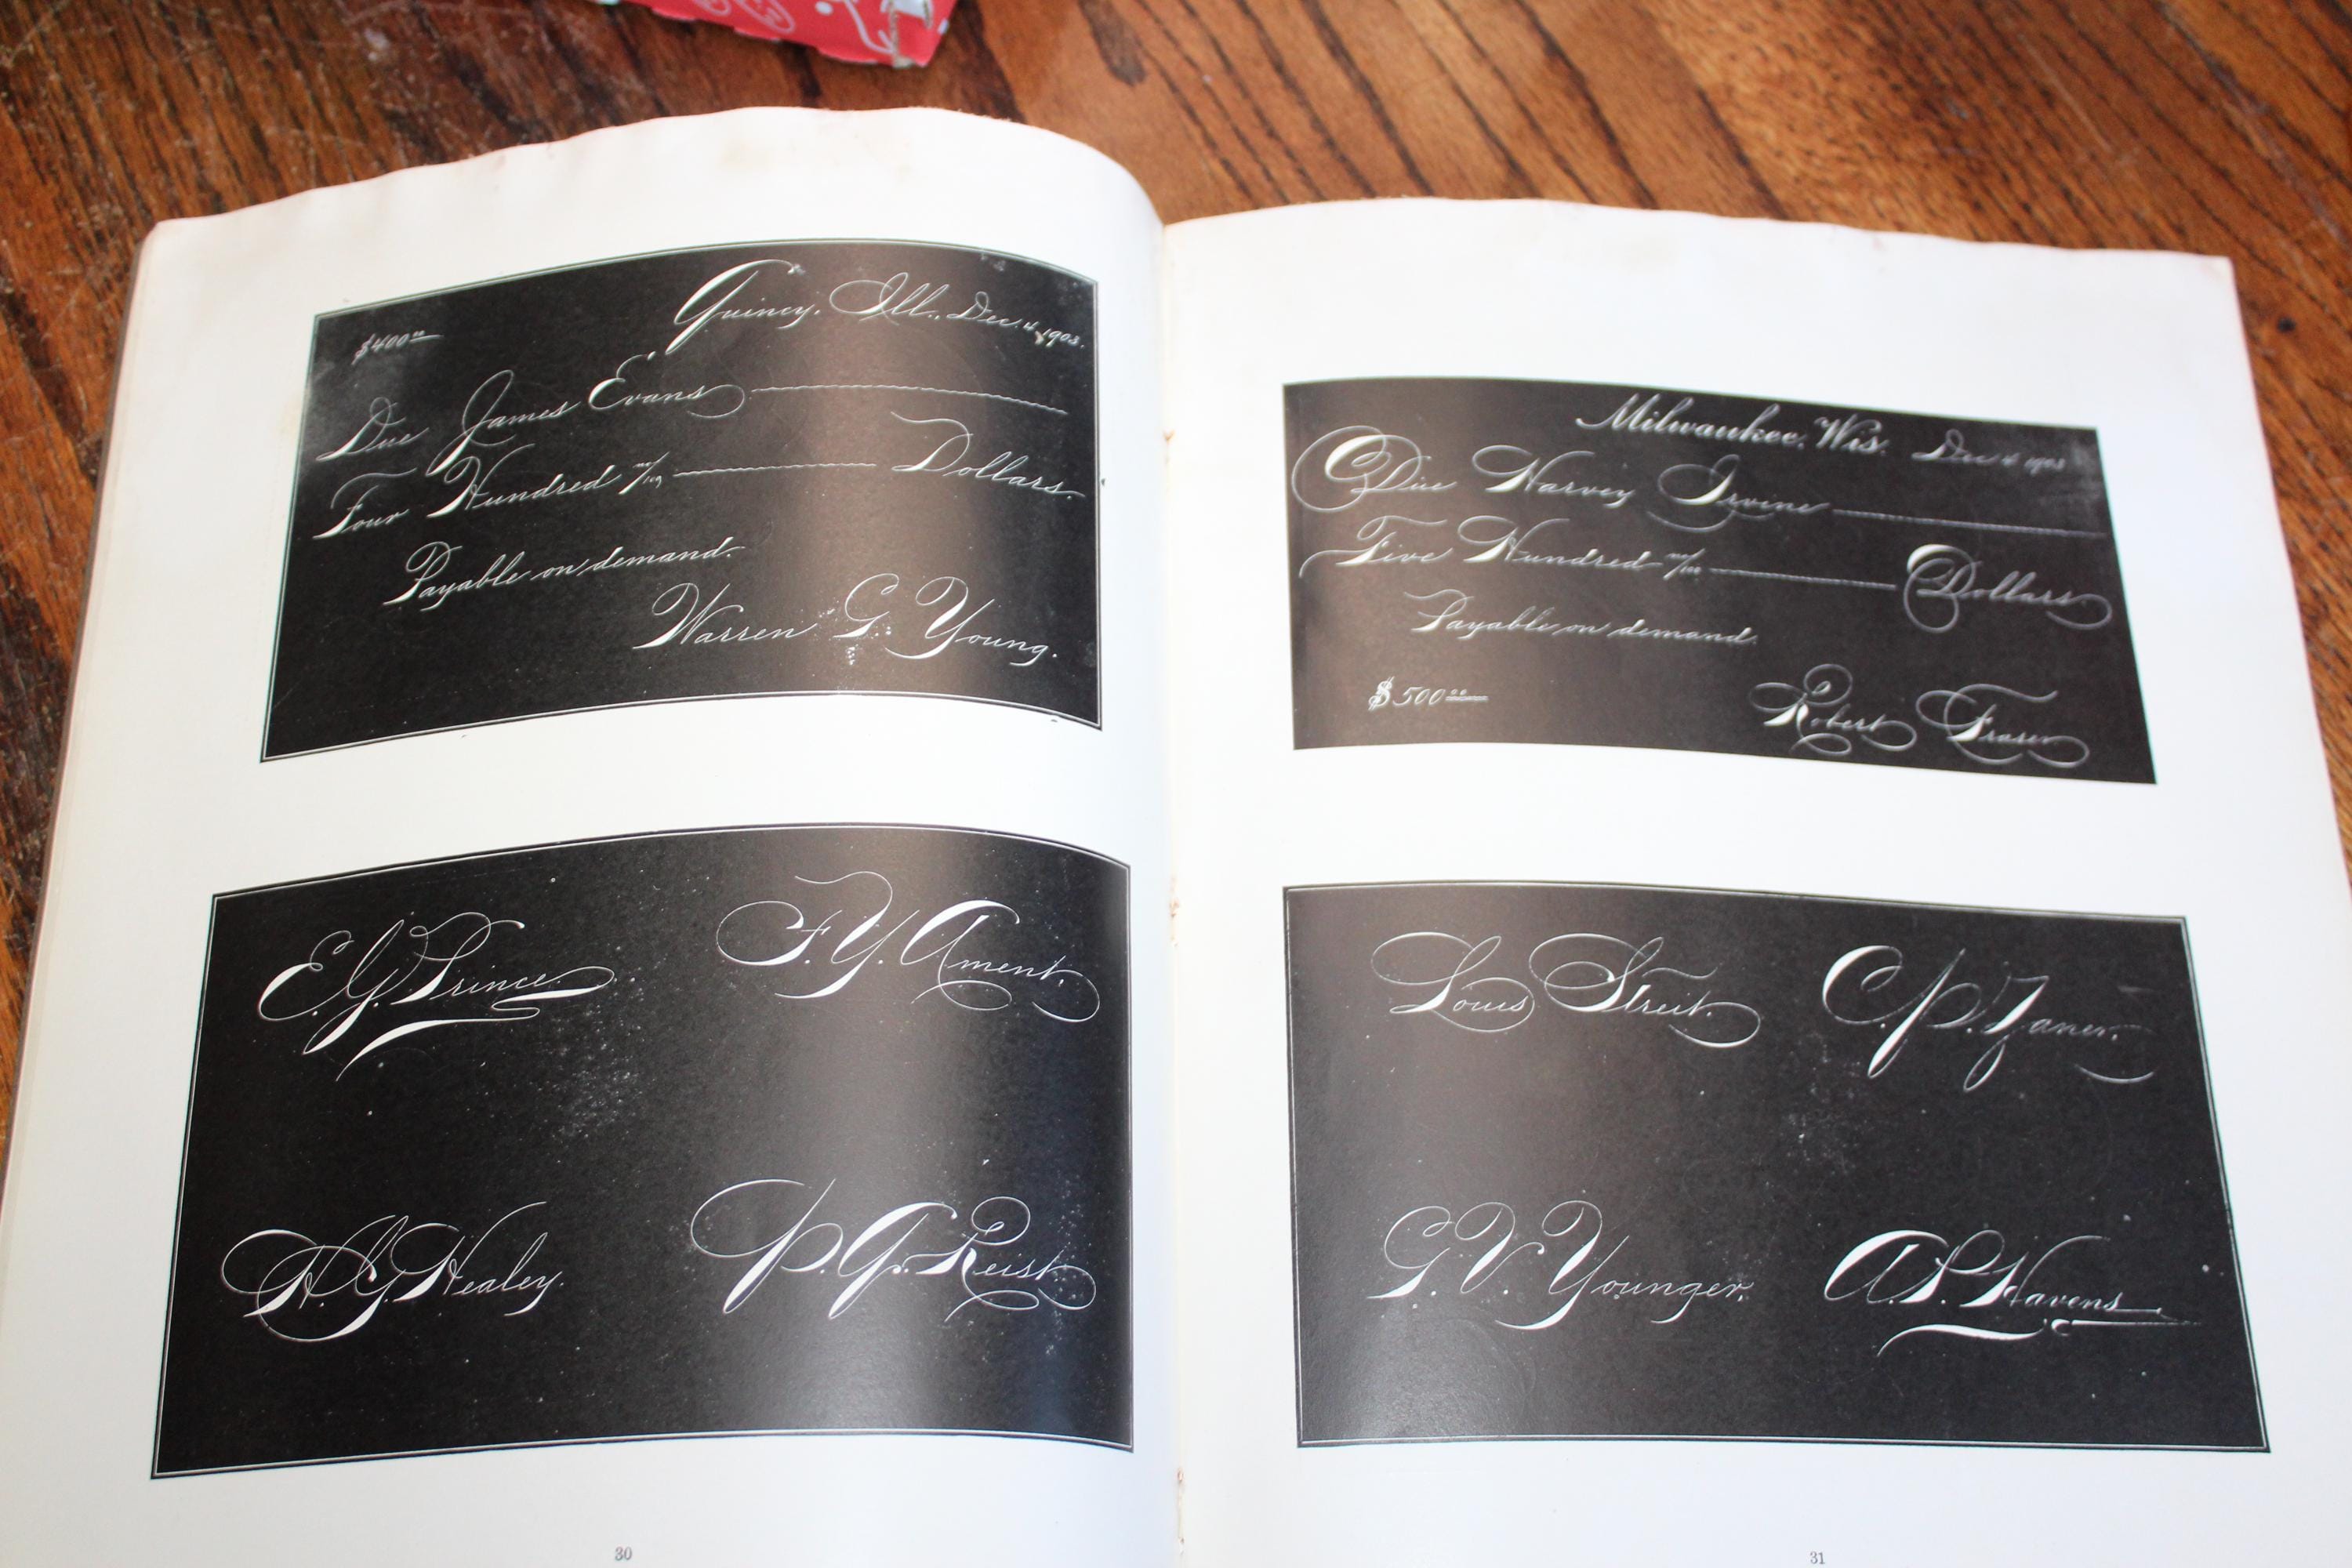 Quincy, Ill., Dec. 4, 1903.
$400 00
Due James Evans
Four Hundred no/100 Dollars.
Payable on demand.
Warren G. Young.
E. G. Prince.
F. Y. Ament.
H. G. Healey.
P. G. Reist.
30
Milwaukee, Wis. Dec 4 1903
Due Harvey Irvine
Five Hundred no/100 Dollars.
Payable on demand.
$500 00
Robert Fraser
Louis Streit.
C. P. Zaner.
G. V. Younger.
A. P. Havens.
31